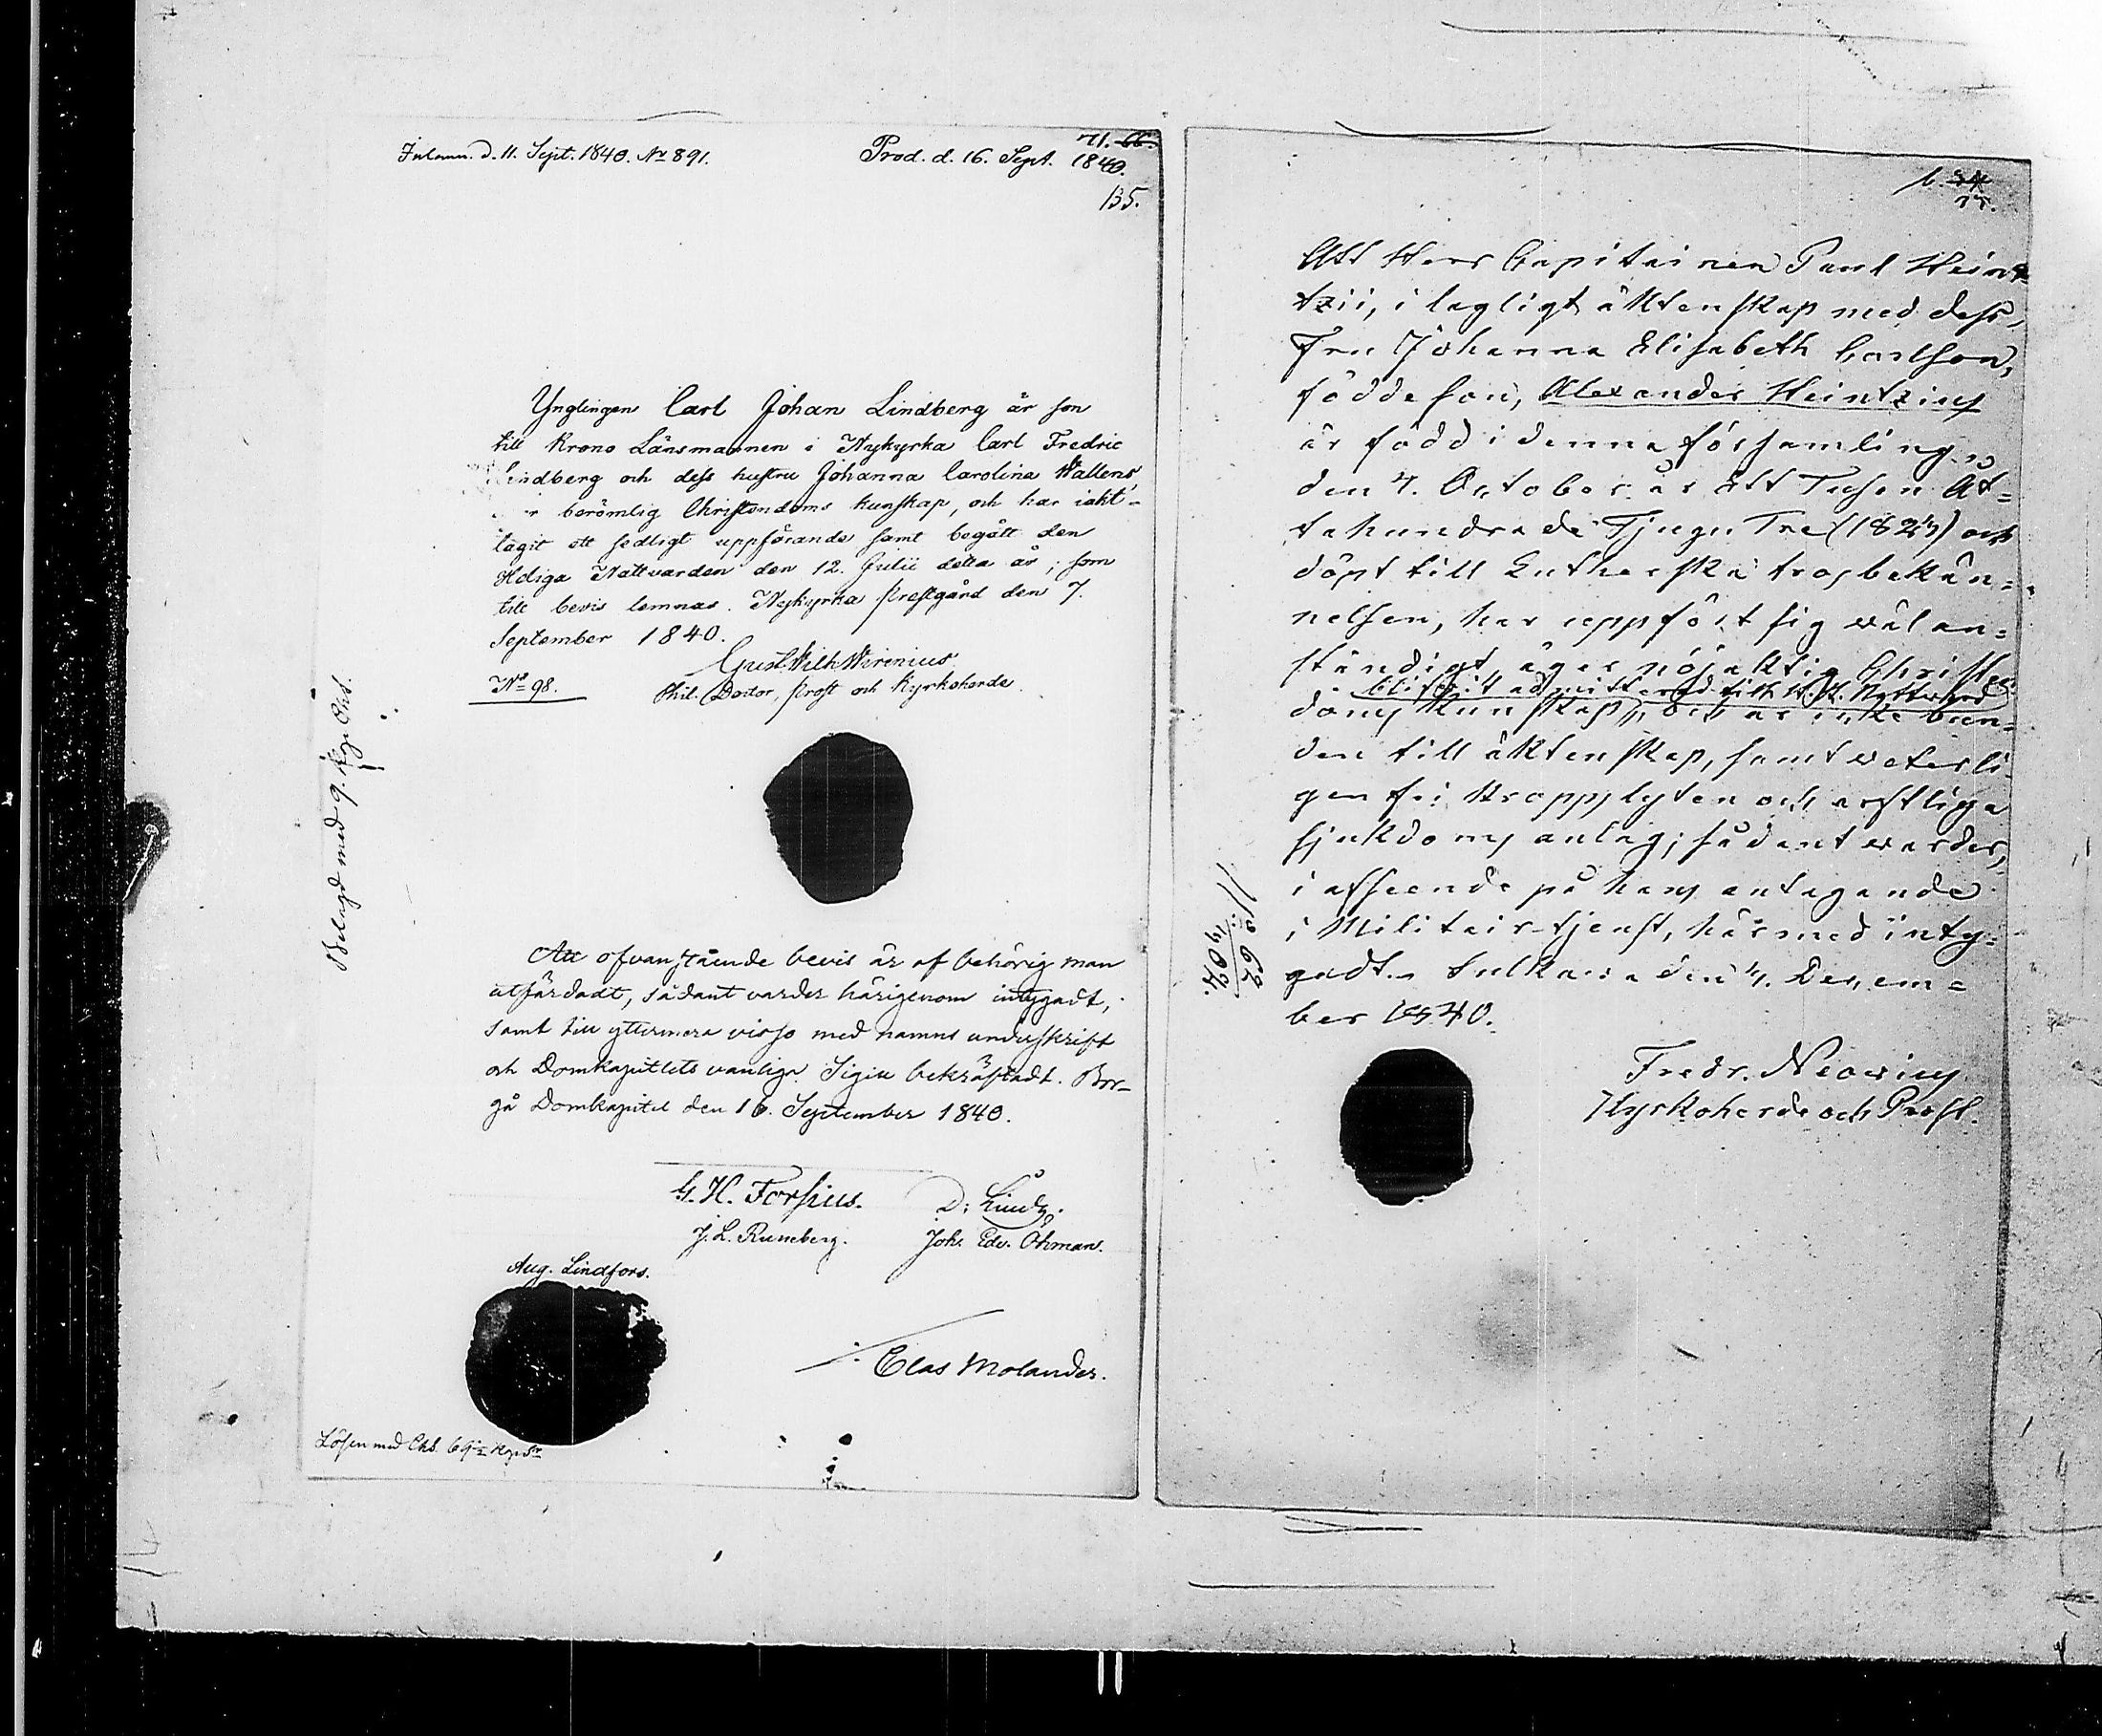 Inkom. d. 11. Sept. 1840. No 891.
Prod. d. 16. Sept. 1840.
71. 66.
135.
Ynglingen Carl Johan Lindberg är son
till Krono Länsmannen i Nykyrka Carl Fredric
Lindberg och dess hustru Johanna Carolina Wallens,
berömlig Christendoms kunskap, och har iakt-
tagit ett sedligt uppförande samt begått den
Heliga Nattvarden den 12. Julii detta år; som
till bevis lemnas. Nykyrka prestgård den 7.
September 1840.
Gust. Wilh. Wirenius
No 98.
Phil. Doctor, Prost och Kyrkoherde.
Belagd med 9. Kop. Chs.
Att ofvanstående bevis är af behörig man
utfärdadt, sådant varder härigenom intygadt,
samt till yttermera visso med namns underskrift
och Domkapitlets vanliga Sigill bekräftadt. Bor-
gå Domkapitel den 16. September 1840.
G. H. Forsius.
J. L. Runeberg.
Joh. Edv. Öhman.
Aug. Lindfors.
Clas Molander.
Lösen med Chs.
Att Herr Capitainen Paul Hein-
tzii, i lagligt äktenskap med dess
Fru Johanna Elisabeth Carlson,
födde son, Alexander Heintzius
är född i denna församling
den 4. October år Ett Tusen Åt=
tahundrade Tjugu Tre (1823) och
döpt till Lutherska trosbekän=
nelsen, har uppfört sig wäl an=
ständigt, äger nöjaktig Christen
blifvit admitterad till H. H. Nattward
doms kunskap, och är icke bun=
den till äktenskap, samt weterli
gen fri kroppslyten och arftliga
sjukdoms anlag; sådant warder,
i afseende på hans antagande
i Militair-tjenst, härmed inty=
gadt. Sulkava den 4. Decem=
ber 1840.
No 62
Fredr. Neovius
Kyrkoherde och Prost.